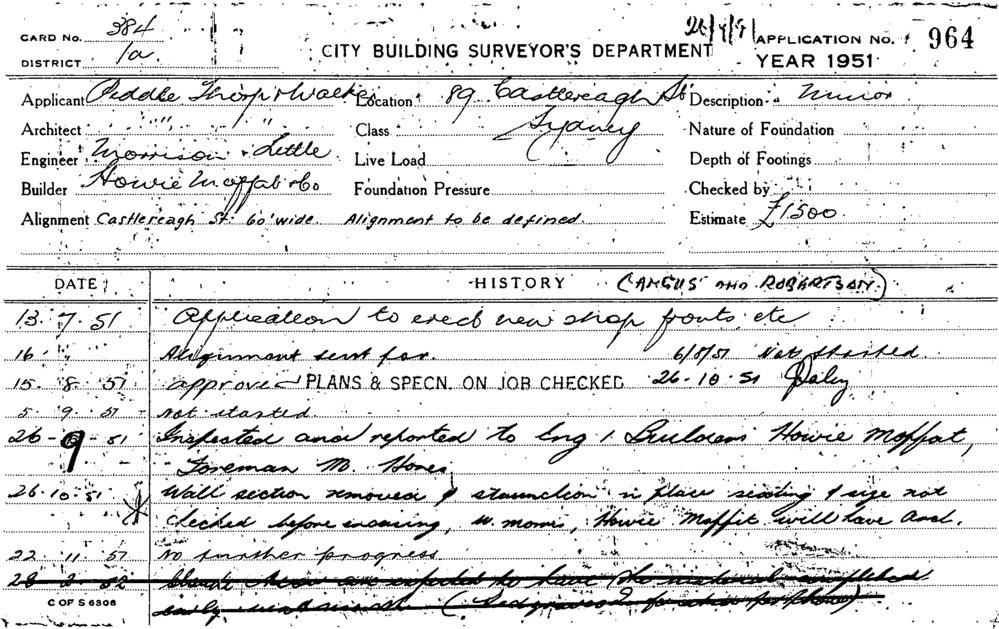 CARD No. 384
DISTRICT 1a
CITY BUILDING SURVEYOR'S DEPARTMENT
APPLICATION No. 964
YEAR 1951
Applicant Peddle Thorp & Walker Location 89 Castlereagh St Description Minor
Architect " " " Class Sydney Nature of Foundation
Engineer Morrison & Little Live Load Depth of Footings
Builder Howie Moffat & Co Foundation Pressure Checked by
Alignment Castlereagh St. 60' wide Alignment to be defined Estimate £1500
DATE HISTORY (ANGUS AND ROBERTSON)
13. 7. 51 Application to erect new shop fronts etc
16 " Alignment sent for. 6/8/51 Not started
15. 8. 51 approved PLANS & SPECN. ON JOB CHECKED 26-10-51 Daley
5. 9. 51 Not started
26-9-51 Inspected and reported to Eng / Builders Howie Moffat,
Foreman M. Hones
26.10.51 Wall section removed & staunchion in place seating & size not
checked before incasing, W. Morris, Howie Moffit will have
22. 11. 51 No further progress
28 2 52 are expected to have the material completed
early next month
C OF S 6306